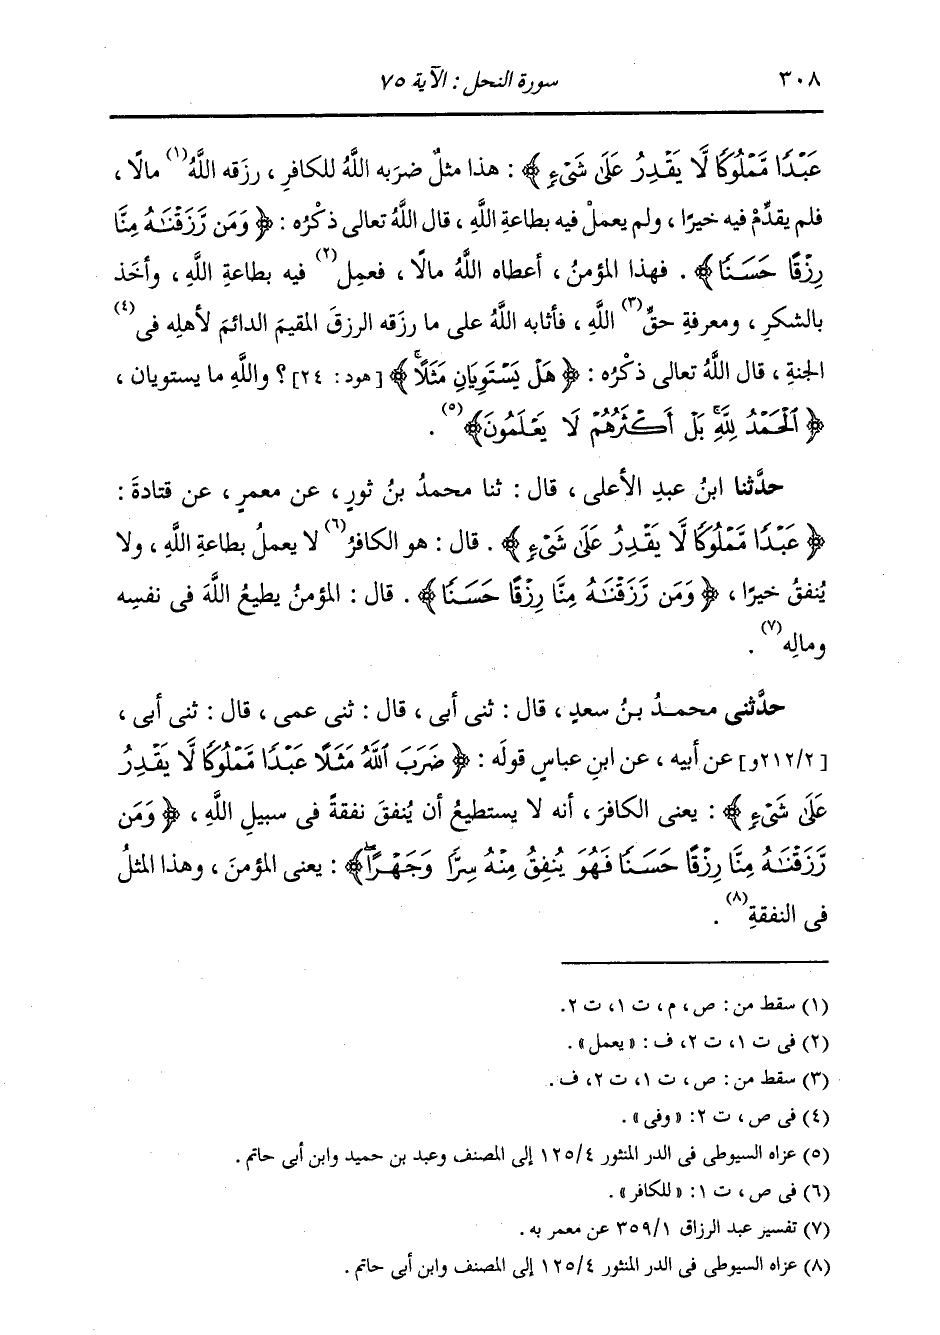 ٣٠٨ سورة النحل : الآية ٧٥
عَبْدًا مَّمْلُوكًا لَّا يَقْدِرُ عَلَىٰ شَىْءٍ ﴾ : هذا مثلٌ ضرَبه اللَّهُ للكافرِ ، رزَقه اللَّهُ(١) مالًا ،
فلم يقدِّمْ فيه خيرًا ، ولم يعملْ فيه بطاعةِ اللَّهِ ، قال اللَّهُ تعالى ذكْرُه : ﴿ وَمَن رَّزَقْنَـٰهُ مِنَّا
رِزْقًا حَسَنًا ﴾ . فهذا المؤمنُ ، أعطاه اللَّهُ مالًا ، فعمِل(٢) فيه بطاعةِ اللَّهِ ، وأخَذ
بالشكرِ ، ومعرفةِ حقِّ(٣) اللَّهِ ، فأثابه اللَّهُ على ما رزَقه الرزقَ المقيمَ الدائمَ لأهلِه فى(٤)
الجنةِ ، قال اللَّهُ تعالى ذكْرُه : ﴿ هَلْ يَسْتَوِيَانِ مَثَلًا ﴾ [هود: ٢٤] ؟ واللَّهِ ما يستويان ،
﴿ ٱلْحَمْدُ لِلَّهِ بَلْ أَكْثَرُهُمْ لَا يَعْلَمُونَ ﴾(٥) .
حدَّثنا ابنُ عبدِ الأعلى ، قال : ثنا محمدُ بنُ ثورٍ ، عن معمرٍ ، عن قتادةَ :
﴿ عَبْدًا مَّمْلُوكًا لَّا يَقْدِرُ عَلَىٰ شَىْءٍ ﴾ . قال : هو الكافرُ(٦) لا يعملُ بطاعةِ اللَّهِ ، ولا
يُنفقُ خيرًا ، ﴿ وَمَن رَّزَقْنَـٰهُ مِنَّا رِزْقًا حَسَنًا ﴾ . قال : المؤمنُ يطيعُ اللَّهَ فى نفسِه
ومالِه(٧) .
حدَّثنى محمدُ بنُ سعدٍ ، قال : ثنى أبى ، قال : ثنى عمى ، قال : ثنى أبى ،
[٢١٢/٢و] عن أبيه ، عن ابنِ عباسٍ قولَه : ﴿ ضَرَبَ ٱللَّهُ مَثَلًا عَبْدًا مَّمْلُوكًا لَّا يَقْدِرُ
عَلَىٰ شَىْءٍ ﴾ : يعنى الكافرَ ، أنه لا يستطيعُ أن يُنفقَ نفقةً فى سبيلِ اللَّهِ ، ﴿ وَمَن
رَّزَقْنَـٰهُ مِنَّا رِزْقًا حَسَنًا فَهُوَ يُنفِقُ مِنْهُ سِرًّا وَجَهْرًا ﴾ : يعنى المؤمنَ ، وهذا المثلُ
فى النفقةِ(٨) .
(١) سقط من : ص ، م ، ت ١ ، ت ٢ .
(٢) فى ت ١ ، ت ٢ ، ف : « يعمل » .
(٣) سقط من : ص ، ت ١ ، ت ٢ ، ف .
(٤) فى ص ، ت ٢ : « وفى » .
(٥) عزاه السيوطى فى الدر المنثور ١٢٥/٤ إلى المصنف وعبد بن حميد وابن أبى حاتم .
(٦) فى ص ، ت ١ : « للكافر » .
(٧) تفسير عبد الرزاق ٣٥٩/١ عن معمر به .
(٨) عزاه السيوطى فى الدر المنثور ١٢٥/٤ إلى المصنف وابن أبى حاتم .